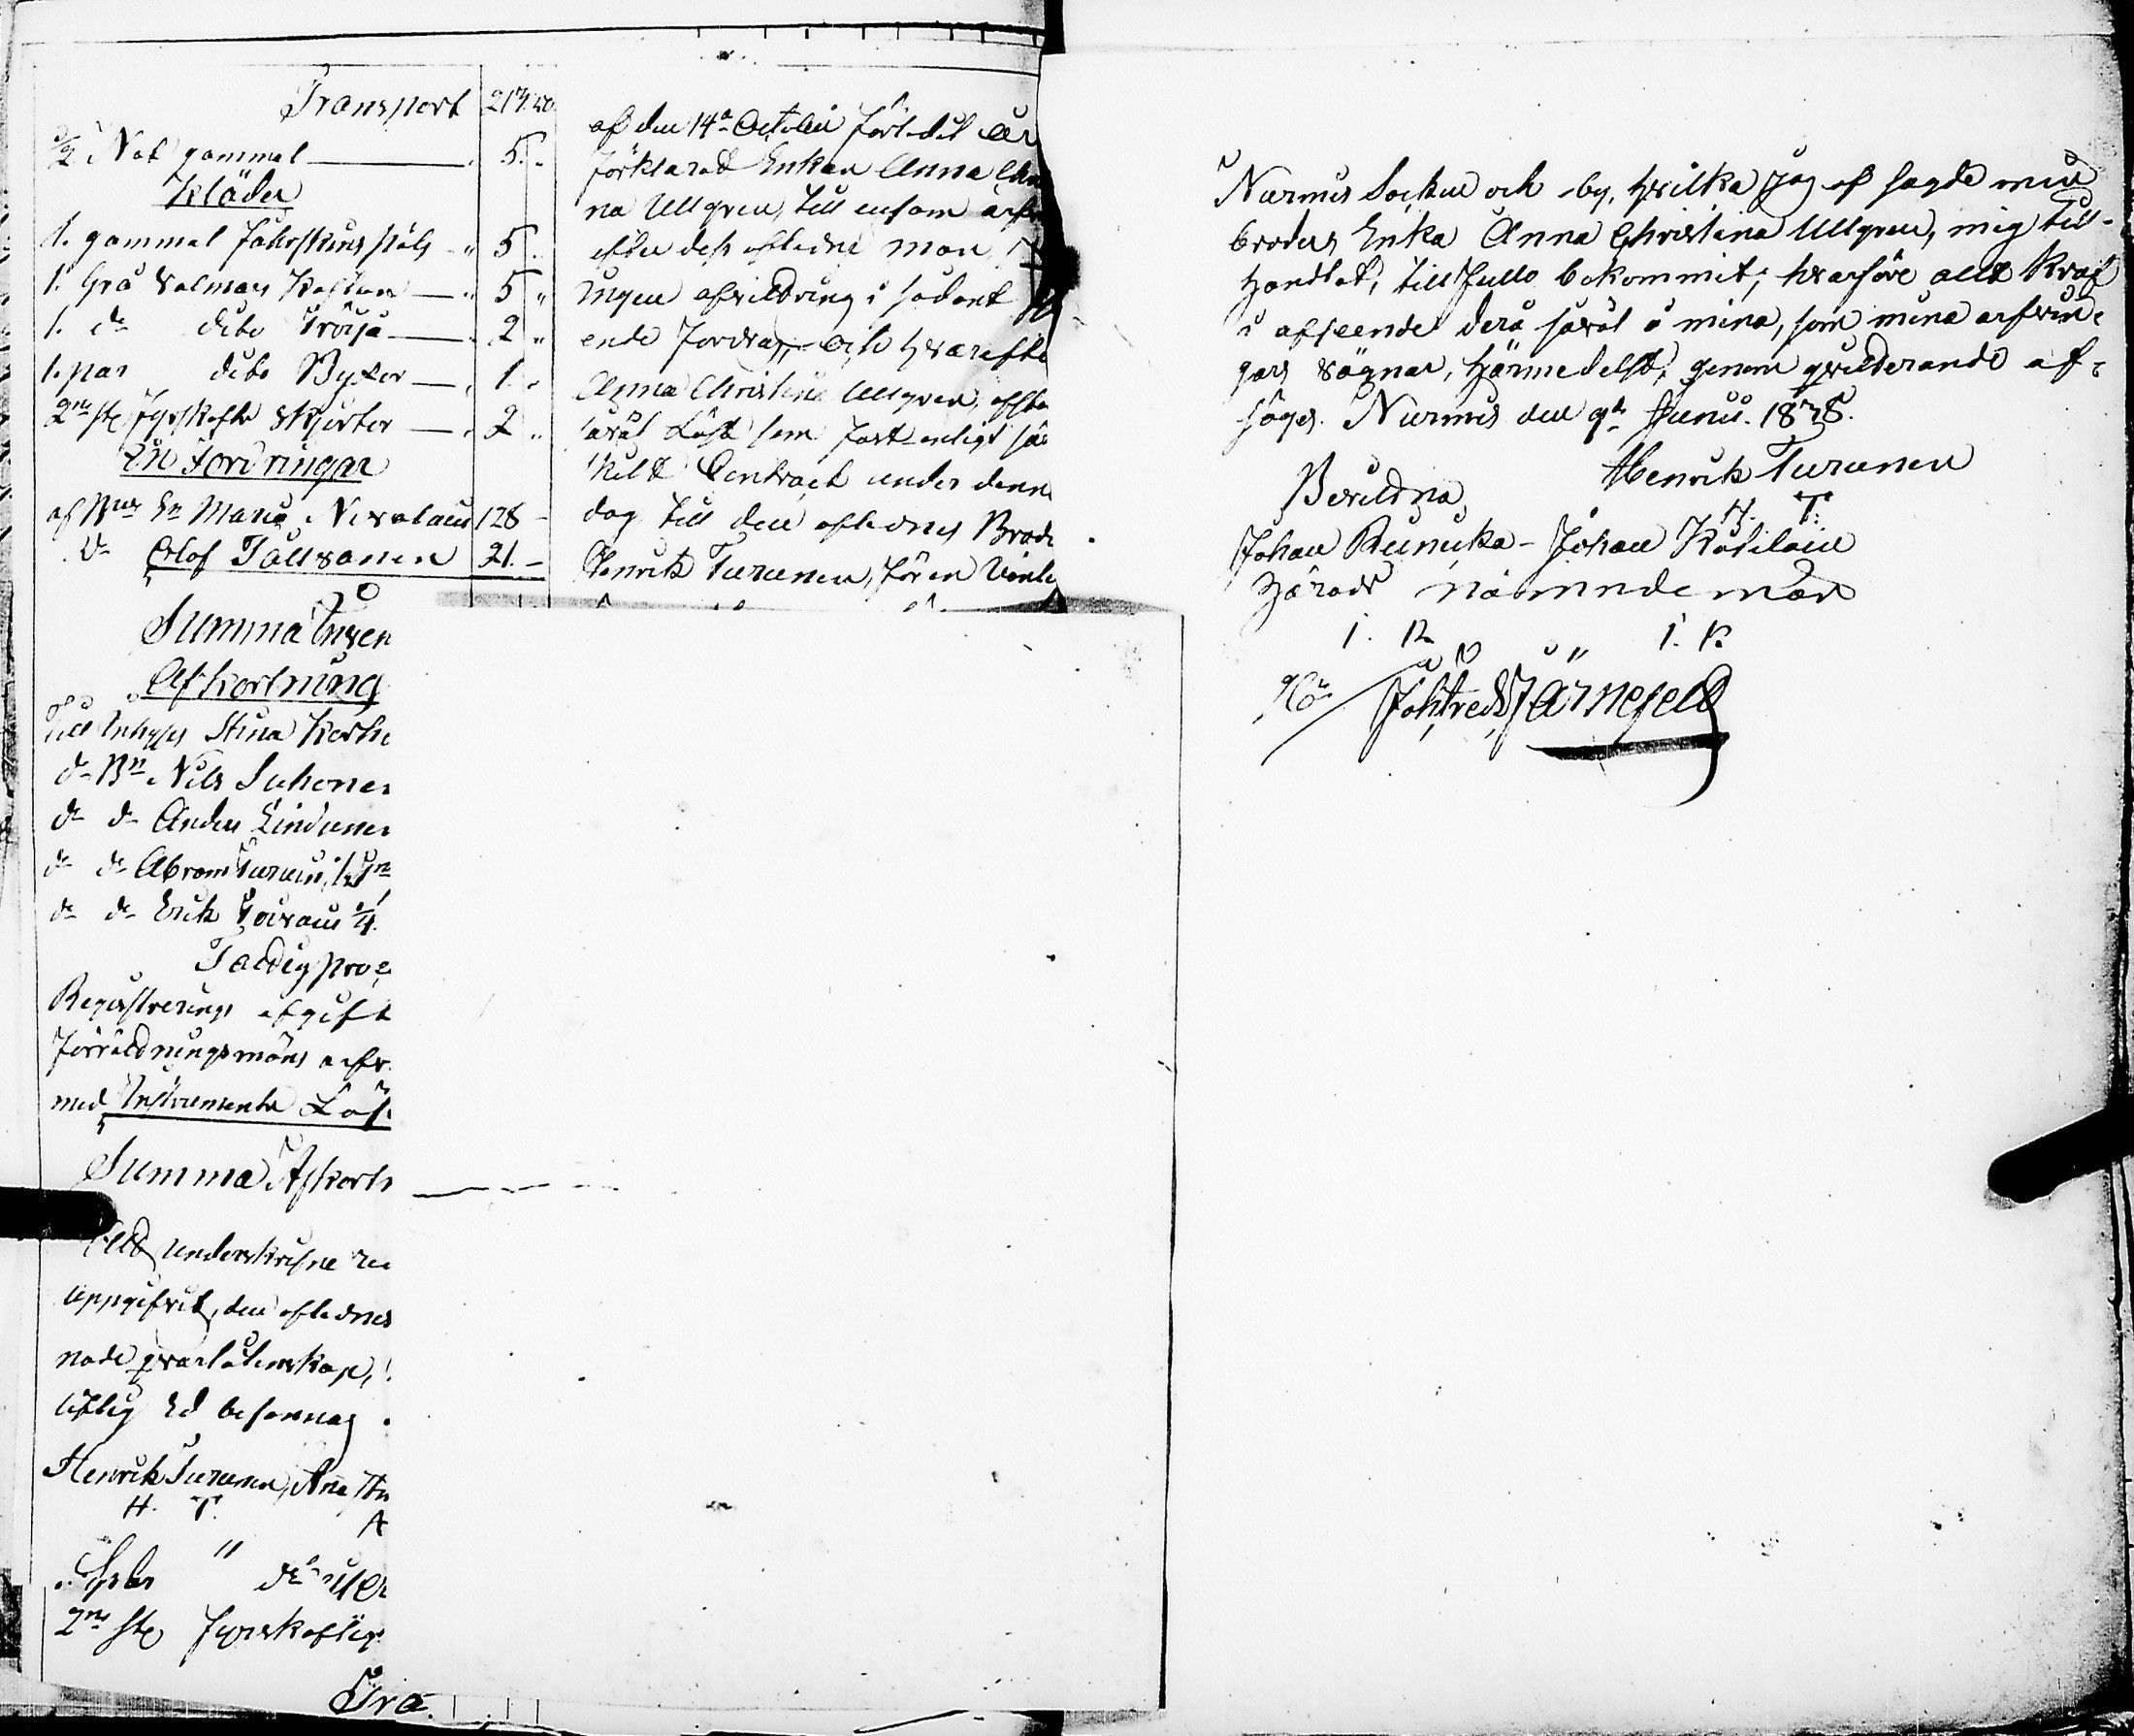 Transport 217. 40.
1/2 Not gammal 5. -
Kläder
1. gammal Fåhrskins päls 5 -
1. Grå Valmars Kaftan 5 "
1. do dito Tröija 2 "
1. par dito Byxor 1. "
2ne st. fyrskafts skjortor 2 "
Utfordringar
af En Maria Nevalain 128 -
do Olof Tallvanen 21. -
Summa Inven
Afkortning
Till Inhyses Stina Korho
do Bn Nils Suhonen
do do Anders
do do Abram Turuin
do do Erik Toivain 1/4.
Fattig proc
Registrerings afgift
Förrättningsmäns arfv.
med Instrumentets Lös
Summa Afkortn
underskrifne
uppgifvit, den aflednes
nade qvarlåtenskap,
liflig Ed besanna
Henrik Turunen, Ana
H. T. A
2ne st. fyrskaftig
Tra
af den 14de October förledit år
förklarat Enkan Anna Chr
na Ullgren, till ensam arf
efter dess aflidne man,
ingen afvildring i sådant
ende fordra, och hvarefter
Anna Christina Ullgren, afstå
såväl Löst som fast enligt sär
skilt Contract under denne
dag till den aflednes Brode
Henrik Turunen, för en
Nurmis Socken och -by, hvilka jag af sagde min
broders Enka Anna Christina Ullgren, mig till-
handlat, till fullo bekommit; hvarföre allt kraf
i afseende derå såväl å mina, som mina arfvin-
gars vägnar, härmedelst, genom qvitterande af-
säges. Nurmis den 9de Junii. 1838.
Henrik Turunen
H. T.
Bevittna
Johan Reinika - Johan Kösilain
Härads nämndemän
I. R. " I. K.
Joh: Fred: Järnefelt